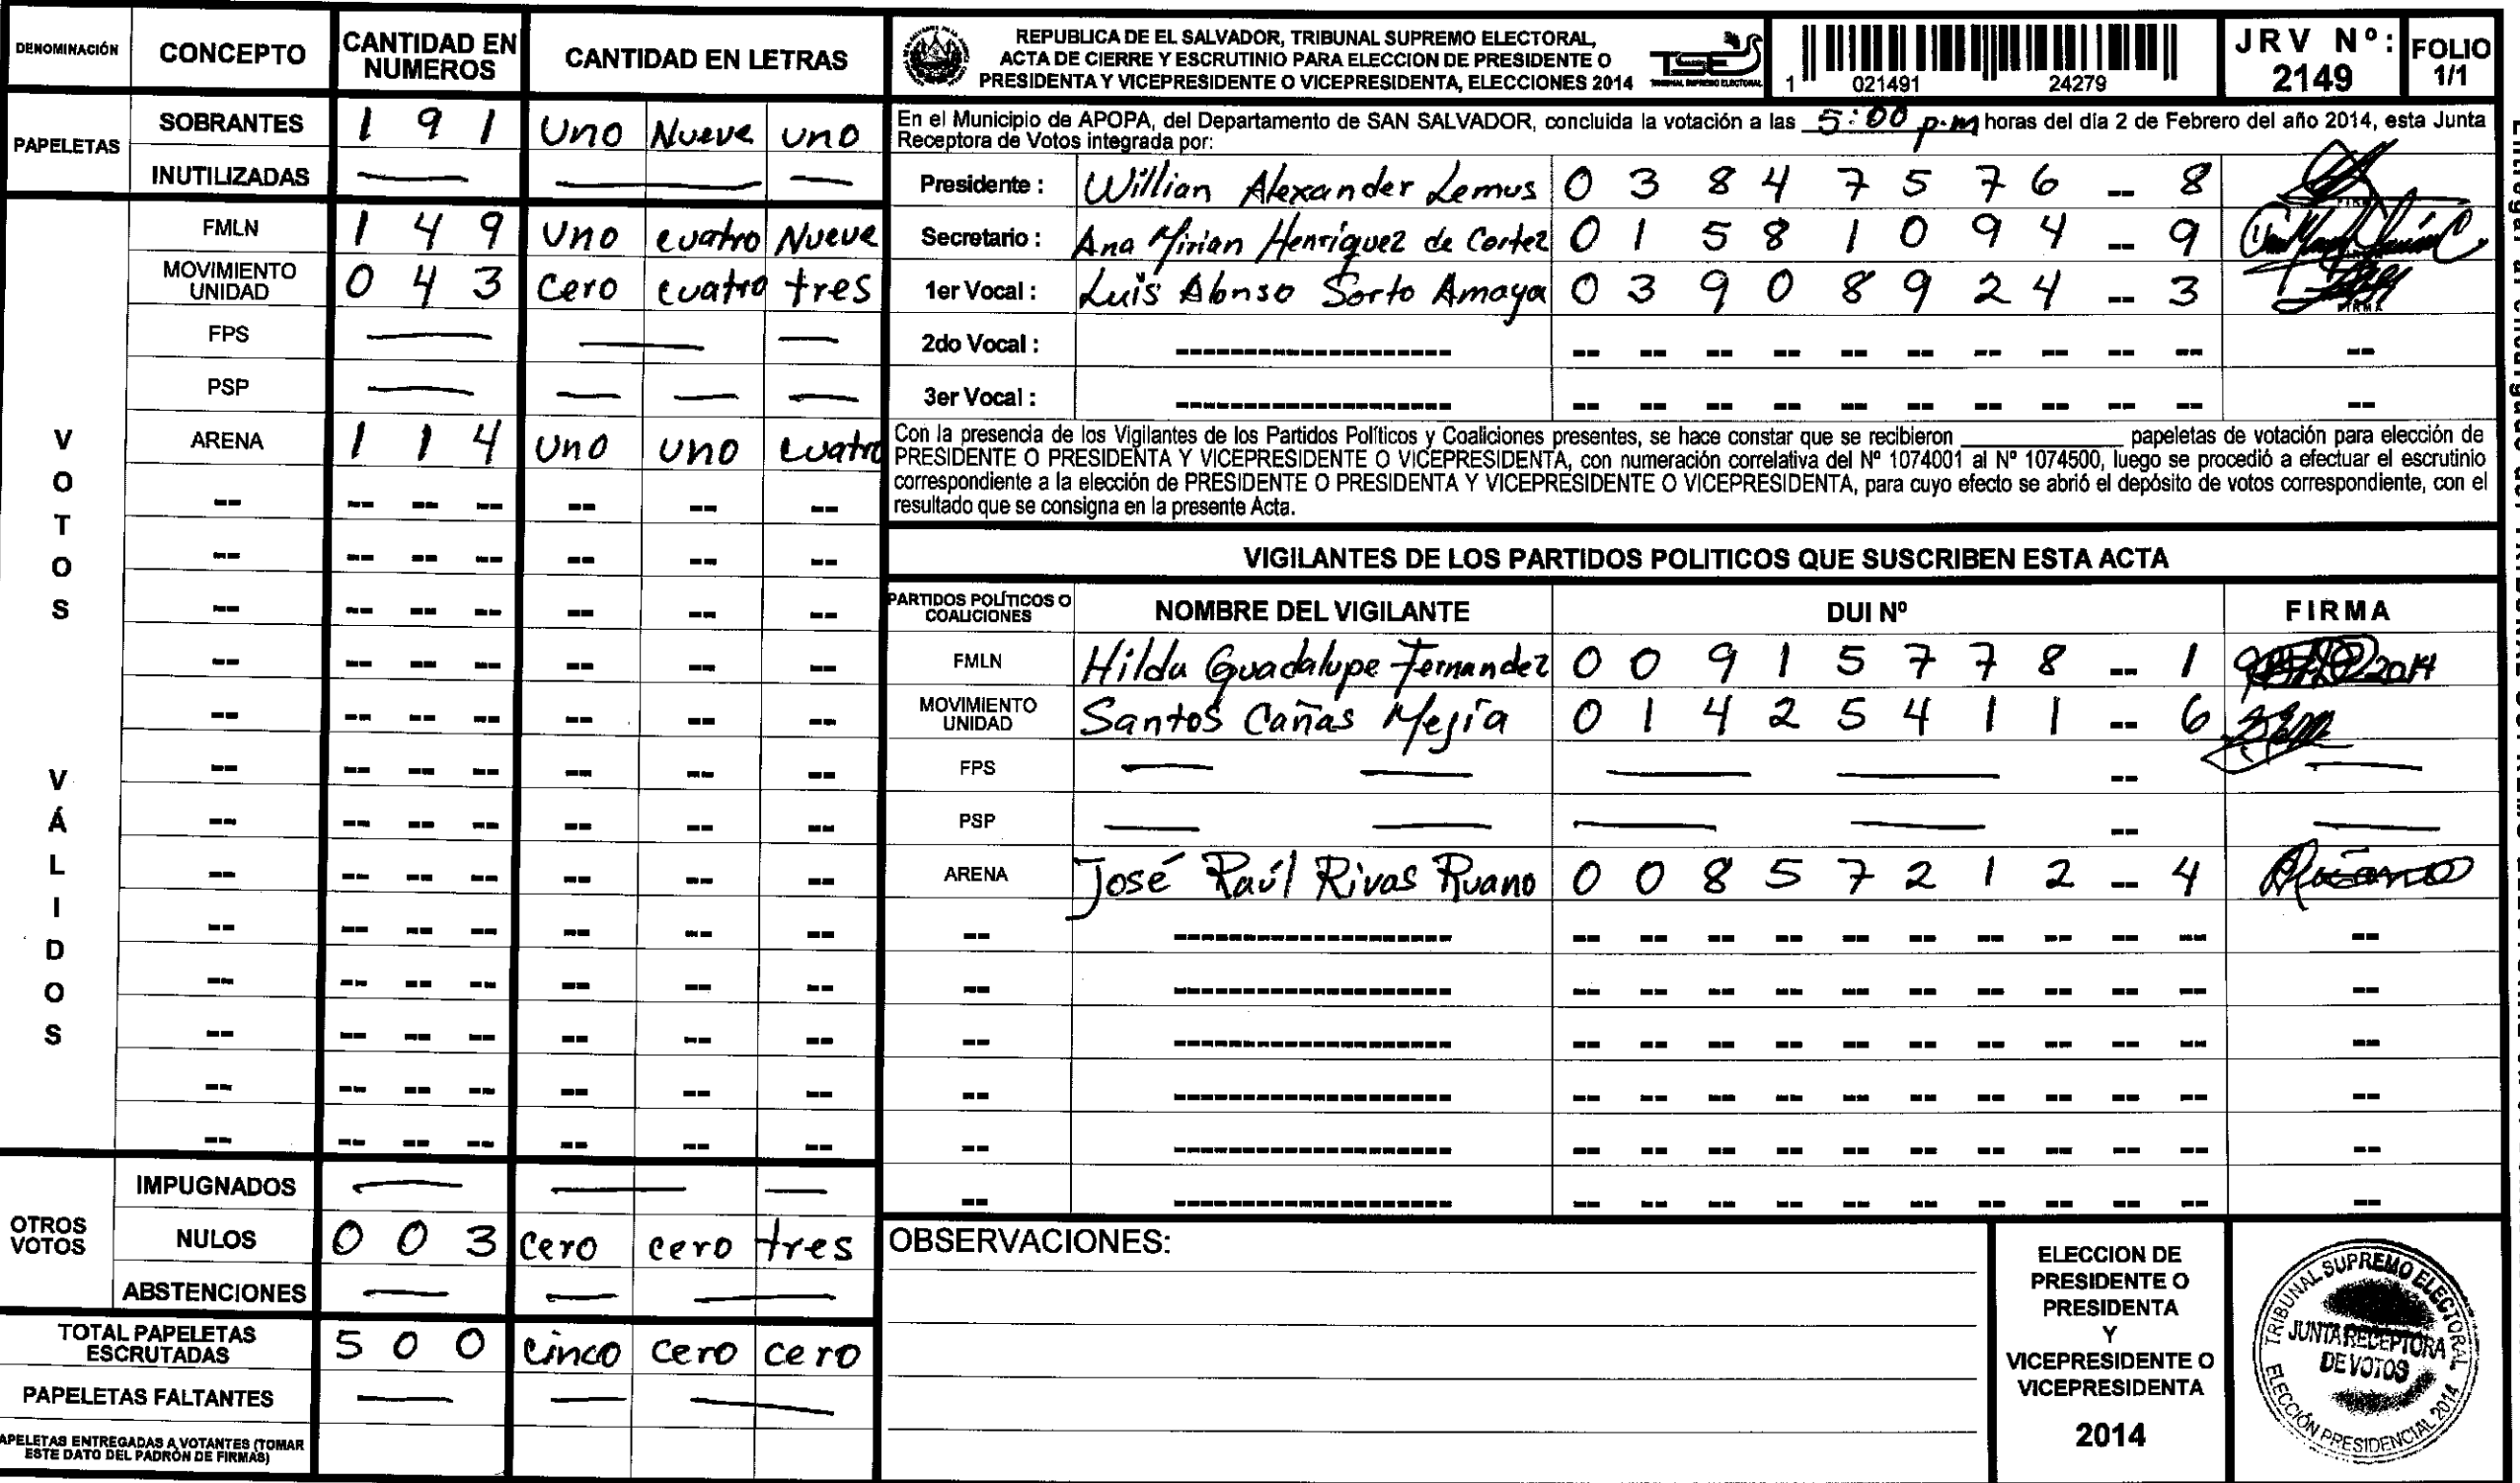 DENOMINACIÓN CONCEPTO CANTIDAD EN NUMEROS CANTIDAD EN LETRAS
PAPELETAS
SOBRANTES 1 9 1 Uno Nueve uno
INUTILIZADAS
VOTOS VÁLIDOS
FMLN 1 4 9 Uno cuatro Nueve
MOVIMIENTO UNIDAD 0 4 3 Cero cuatro tres
FPS
PSP
ARENA 1 1 4 uno uno cuatro
OTROS VOTOS
IMPUGNADOS
NULOS 0 0 3 cero cero tres
ABSTENCIONES
TOTAL PAPELETAS ESCRUTADAS 5 0 0 cinco cero cero
PAPELETAS FALTANTES
APELETAS ENTREGADAS A VOTANTES (TOMAR
ESTE DATO DEL PADRÓN DE FIRMAS)
REPUBLICA DE EL SALVADOR, TRIBUNAL SUPREMO ELECTORAL,
ACTA DE CIERRE Y ESCRUTINIO PARA ELECCION DE PRESIDENTE O
PRESIDENTA Y VICEPRESIDENTE O VICEPRESIDENTA, ELECCIONES 2014
TSE
TRIBUNAL SUPREMO ELECTORAL
1 021491 24279
JRV Nº: 2149
FOLIO 1/1
En el Municipio de APOPA, del Departamento de SAN SALVADOR, concluida la votación a las 5:00 p.m horas del día 2 de Febrero del año 2014, esta Junta
Receptora de Votos integrada por:
Presidente : Willian Alexander Lemus 0 3 8 4 7 5 7 6 -- 8
Secretario : Ana Mirian Henríquez de Cortez 0 1 5 8 1 0 9 4 -- 9
1er Vocal : Luis Alonso Sorto Amaya 0 3 9 0 8 9 2 4 -- 3 FIRMA
2do Vocal :
3er Vocal :
Con la presencia de los Vigilantes de los Partidos Políticos y Coaliciones presentes, se hace constar que se recibieron ________ papeletas de votación para elección de
PRESIDENTE O PRESIDENTA Y VICEPRESIDENTE O VICEPRESIDENTA, con numeración correlativa del Nº 1074001 al Nº 1074500, luego se procedió a efectuar el escrutinio
correspondiente a la elección de PRESIDENTE O PRESIDENTA Y VICEPRESIDENTE O VICEPRESIDENTA, para cuyo efecto se abrió el depósito de votos correspondiente, con el
resultado que se consigna en la presente Acta.
VIGILANTES DE LOS PARTIDOS POLITICOS QUE SUSCRIBEN ESTA ACTA
PARTIDOS POLÍTICOS O COALICIONES NOMBRE DEL VIGILANTE DUI Nº FIRMA
FMLN Hilda Guadalupe Fernandez 0 0 9 1 5 7 7 8 -- 1 2014
MOVIMIENTO UNIDAD Santos Cañas Mejía 0 1 4 2 5 4 1 1 -- 6
FPS
PSP
ARENA José Raúl Rivas Ruano 0 0 8 5 7 2 1 2 -- 4
OBSERVACIONES:
ELECCION DE
PRESIDENTE O
PRESIDENTA
Y
VICEPRESIDENTE O
VICEPRESIDENTA
2014
TRIBUNAL SUPREMO ELECTORAL
JUNTA RECEPTORA
DE VOTOS
ELECCIÓN PRESIDENCIAL 2014